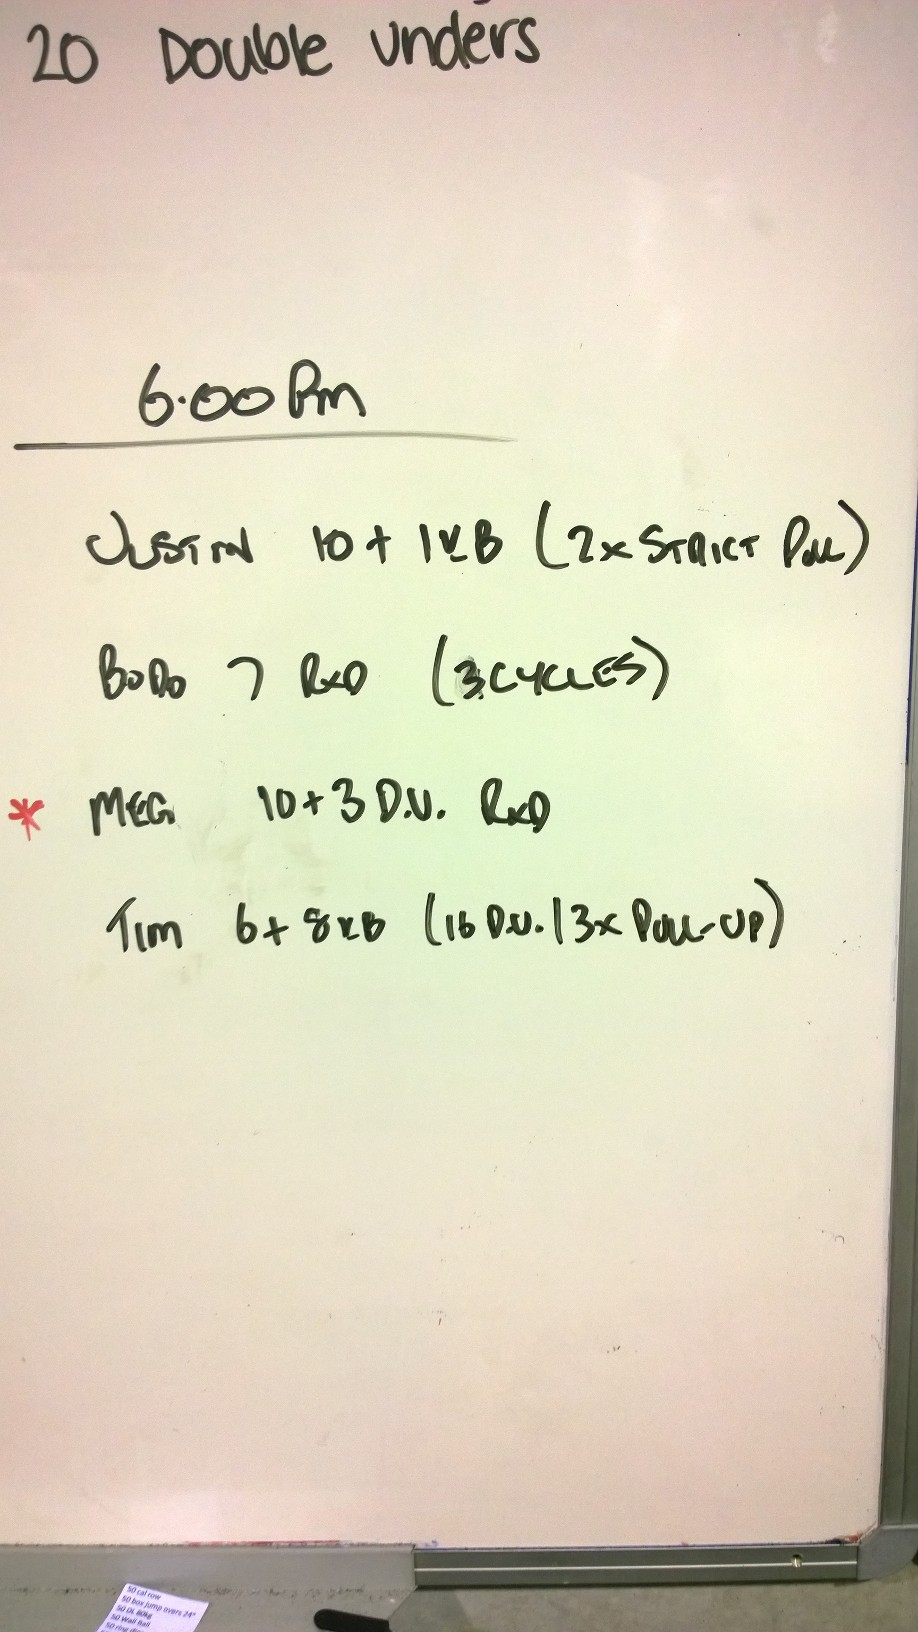 20 Double unders
6.00 Pm
JUSTIN 10 + 1KB (2x STRICT PULL)
BODO 7 RxD (3 CYCLES)
* MEG 10+3 D.U. RxD
TIM 6+ 8KB (16 D.U. | 3x PULL-UP)
50 cal row
50 box jump overs 24"
50 DL 80kg
50 Wall Ball
50 ring